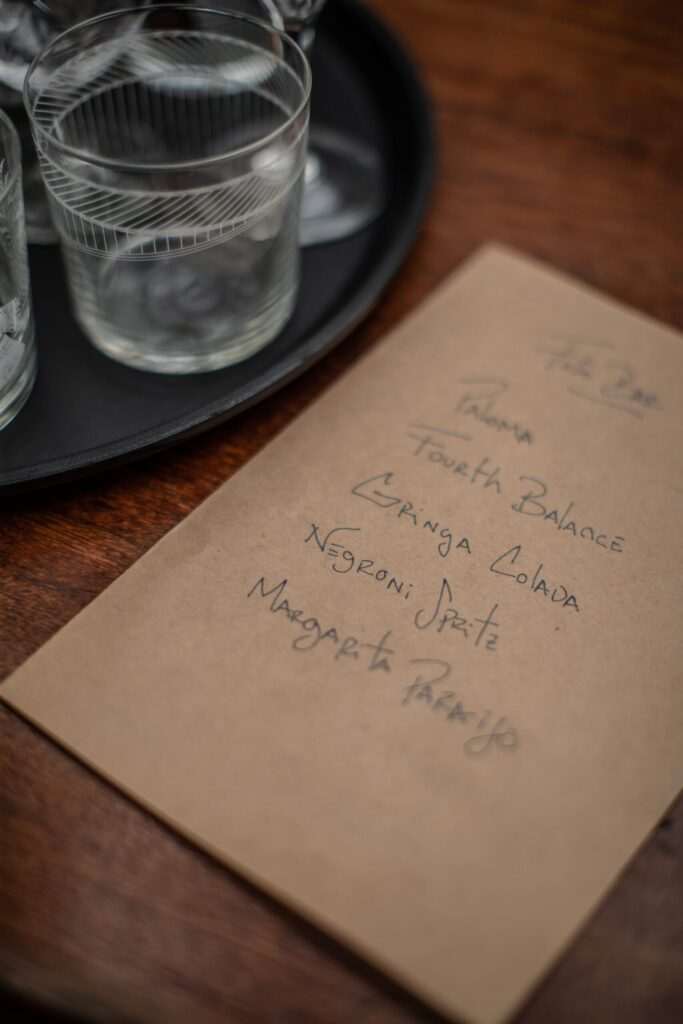 Bar
Paloma
Fourth Balance
Gringa Colada
Negroni Spritz
Margarita Paraiso